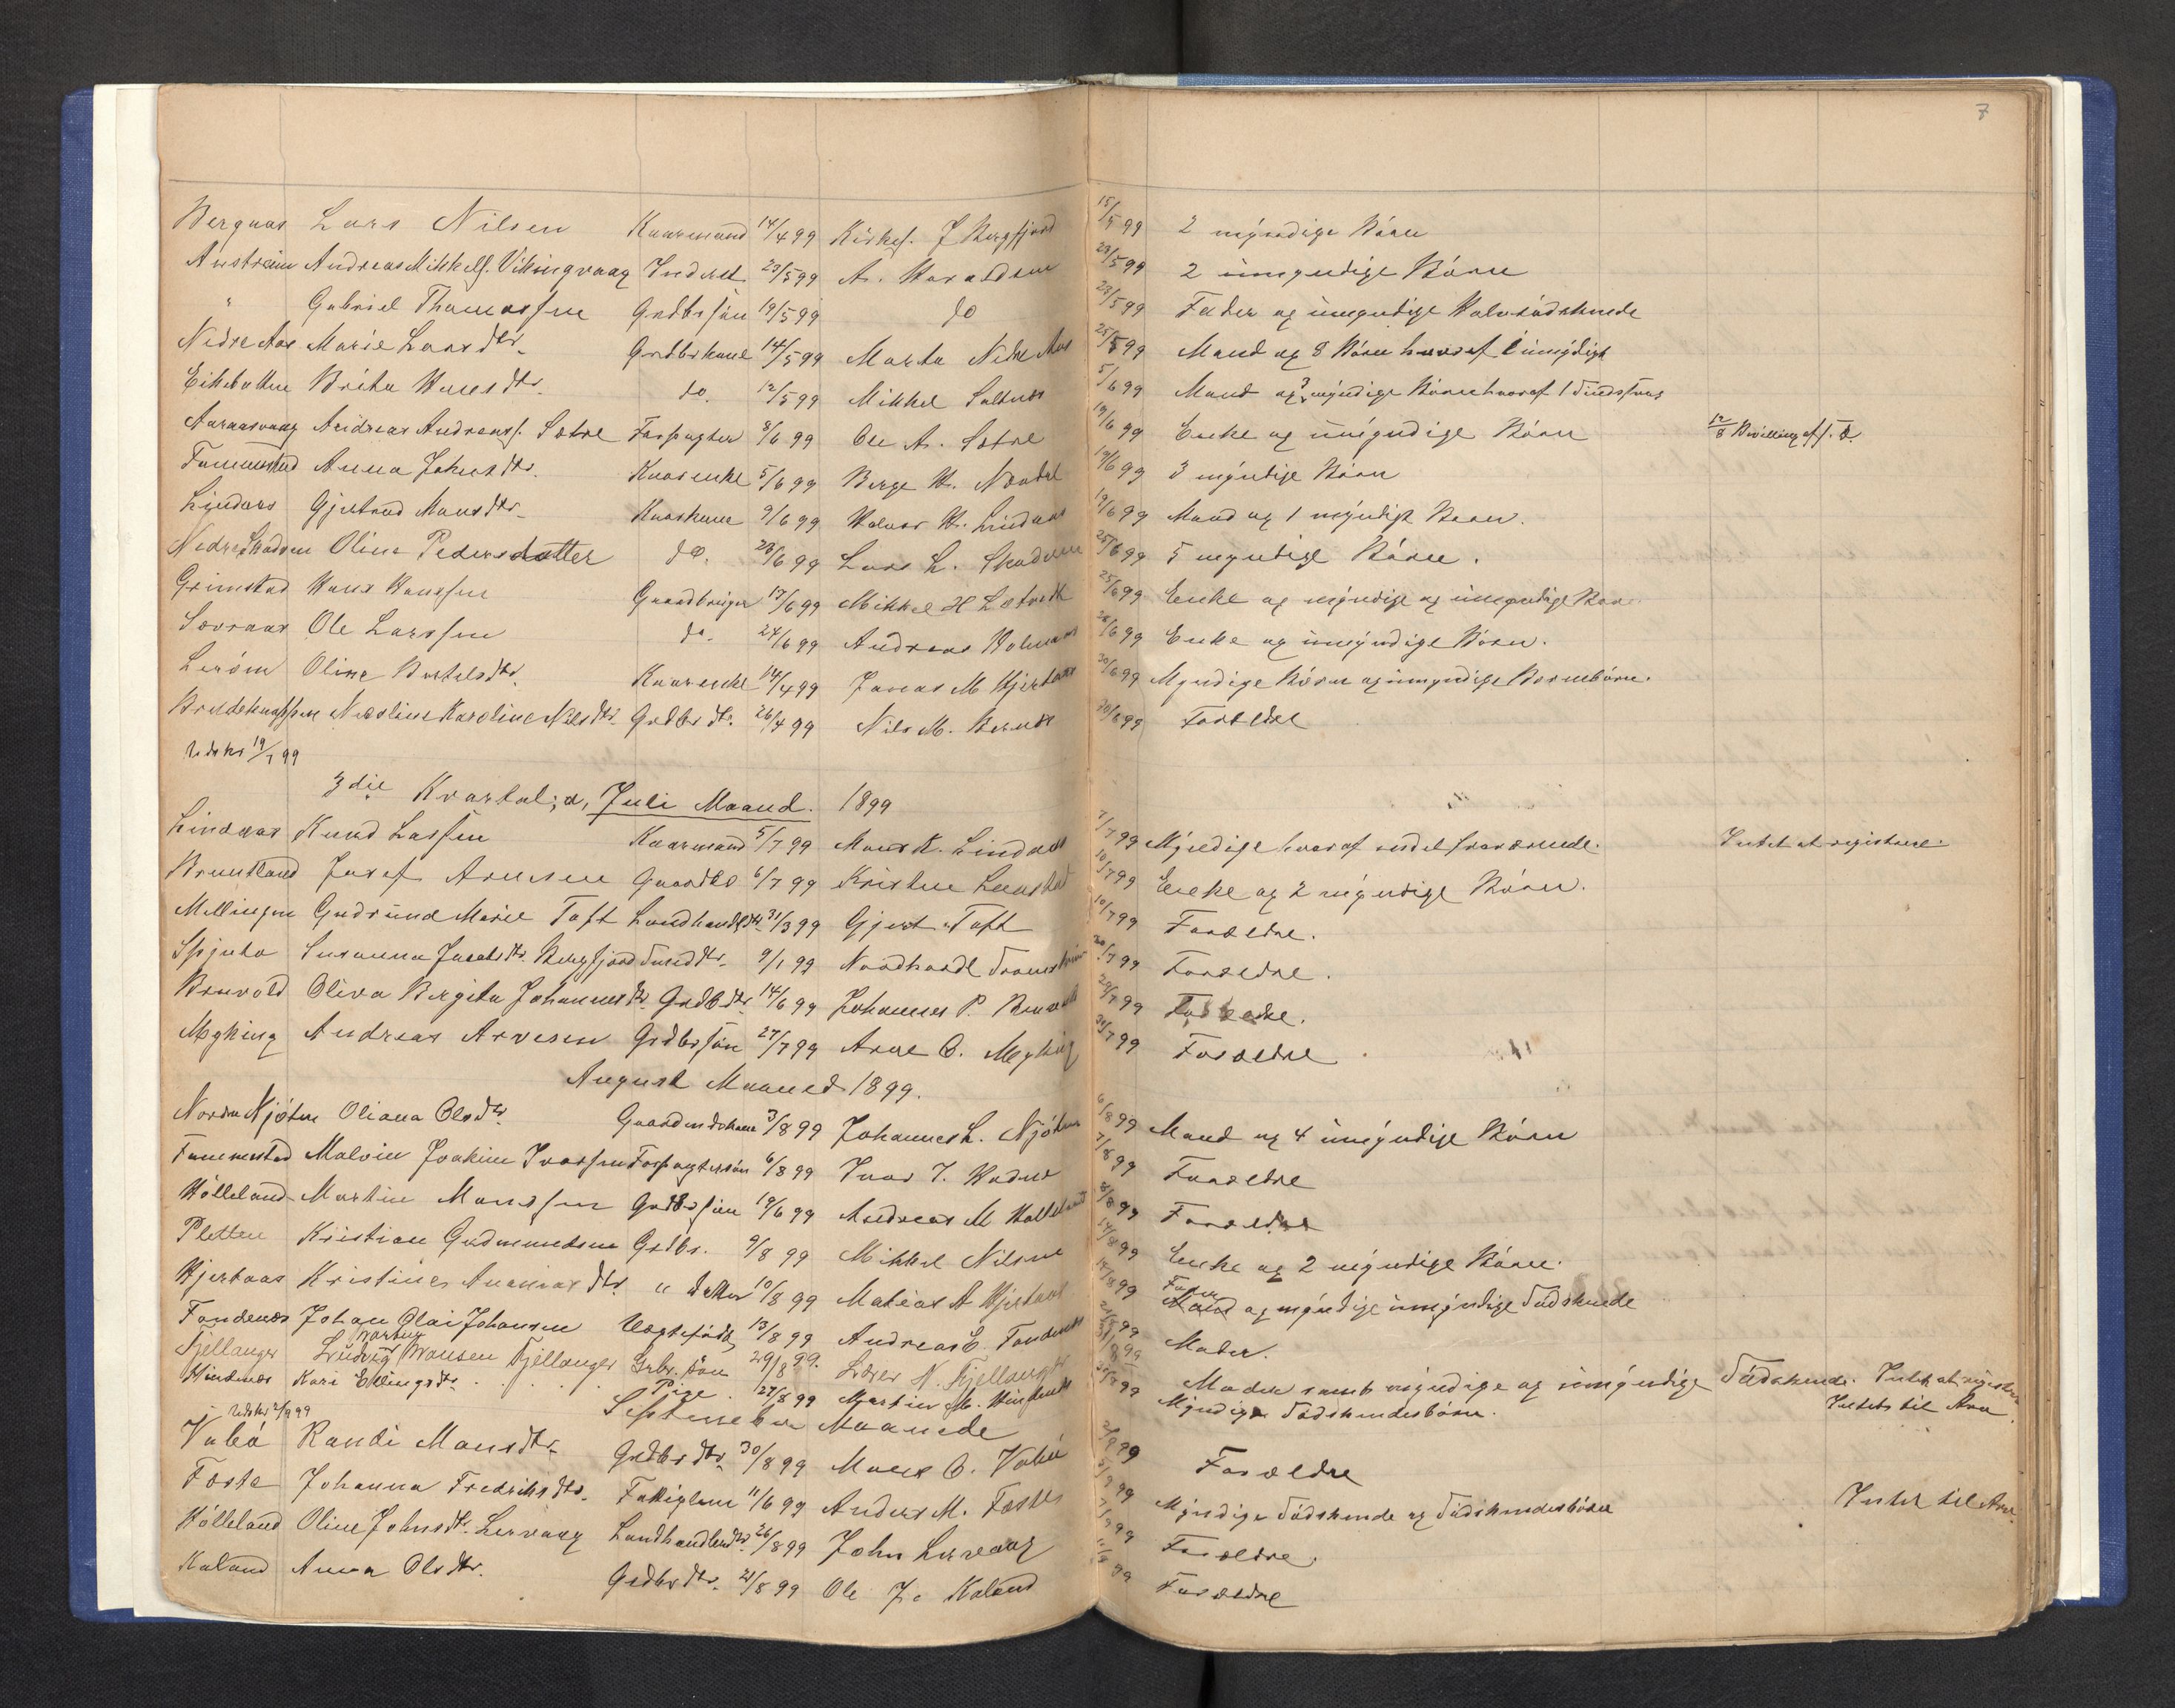 7
Bergaas Lars Nilsen Kaarmand 14/4 99 Kirkes. J Bergfjord 15/5 99 2 myndige Börn
Austreim Andreas Mikkels. Vikingvaag Inderst 23/5 99 A. Haraldsen 23/5 99 2 umyndige Börn
" Gabriel Thomassen Grdbrsön 19/5 99 do 23/5 99 Fader og umyndige Halvsödskende
Nedre Aas Marie Larsdtr. Grdbrkone 14/5 99 Marta Nedre Aas 25/5 99 Mand og 8 Börn hvoraf 1 umyndigt
Eikebotten Brita Hansdtr. do. 12/5 99 Mikkel Saltnes 5/6 99 Mand og 3 myndige Börn hvoraf 1 Sindssvag
Aaraasvaag Andreas Andreass. Sætre Forpagter 8/6 99 Ole A. Sætre 19/6 99 Enke og umyndige Börn 12/8 Bevilling af f. D.
Fammestad Anna Johnsdtr. Kaarenke 5/6 99 Berge H. Nordal 19/6 99 3 myndige Börn
Lindaas Gjertrud Monsdtr. Kaarkone 9/6 99 Halvor H. Lindaas 19/6 99 Mand og 1 myndigt Barn.
Nedre Skodven Oline Pedersdatter do. 23/6 99 Lars L. Skodven 25/6 99 5 myndige Börn.
Grimstad Hans Hanssen Gaardbruger 17/6 99 Mikkel H Lötvedt 25/6 99 Enke og myndige og umyndige Börn
Sævraas Ole Larssen do. 24/6 99 Andreas Holmaas 28/6 99 Enke og umyndige Börn.
Leröen Oline Bertelsdtr. Kaarenke 14/4 99 Jonas M Hjertaas 30/6 99 Myndige Börn og umyndige Barnebörn.
Brudeknappen Nikoline Karoline Nilsdtr. Grdbrdtr. 26/4 99 Nils M. Bernes 30/6 99 Forældre
Udskr 19/7 99
3die Kvartal; a, Juli Maaned. 1899
Lindaas Knud Lassen Kaarmand 5/7 99 Mons K. Lindaas 7/7 99 Myndige hvoraf endel fraværende. Intet at registrere.
Bruntland Josef Arnesen Gaardbr 6/7 99 Kristen Leenstad 10/7 99 Enke og 2 myndige Börn.
Mellingen Gudrund Marie Toft Landhandldtr 31/3 99 Gjert Toft 10/7 99 Forældre.
Spjuto Susanna Jacobsdtr. Bergfjord Smeddtr. 9/1 99 Nordhordl Tromstrim 20/7 99 Forældre.
Bruvold Oliva Bergita Johannesdtr. Grdbrdtr. 14/6 99 Johannes P. Bruvold 29/7 99 Forældre.
Myking Andreas Arnesen Grdbrsön 27/7 99 Arne O. Myking 31/7 99 Forældre.
August Maaned 1899.
Nordre Njöten Oliana Olsdtr. Gaardmdskone 3/8 99 Johannes L. Njöten 6/8 99 Mand og 4 umyndige Börn
Fammestad Malvin Joakim Ivarsen Forpagtersön 6/8 99 Ivar J. Hodne 7/8 99 Forældre
Hölleland Martin Monssen Grdbrsön 19/6 99 Andreas M Hölleland 8/8 99 Forældre
Pletten Kristian Gudmundsen Grdbr. 9/8 99 Mikkel Nilsen 14/8 99 Enke og 2 myndige Börn.
Hjertaas Kristine Ananiasdtr. " datter 10/8 99 Matias A Hjertaas 15/8 99 Fader Mand og myndige umyndige Södskende
Fondenes Johan Olai Johansen Ungkarl 13/8 99 Andreas E. Fondenes 21/8 99 Moder.
Fjellanger Ludvig Martin Monsen Fjellanger Grbr. sön 29/8 99. Lærer N. Fjellanger 31/8 99 Moder samt myndige og umyndige Södskende. Intet at registrere
Hindenes Kari Ellingsdtr. . . . . Pige 27/8 99 Martin M. Hindenes Myndige Södskendesbörn. Intets til Arv.
Udskr 2/9 99 September Maanede
Vabö Randi Monsdtr. Grdbrdtr. 30/8 99 Mons O. Vabö Forældre
Foste Johanna Fredriksdtr. Fattiglem 11/6 99 Anders M. Foste Myndige Södskende og Södskendesbörn Intet til Arv.
Kölleland Oline Johnsdtr. Lervaag Landhandlerdtr. 26/8 99 John Lervaag Forældre.
Kaland Anna Olsdtr. Grdbrdtr. 21/8 99 Ole J. Kaland Forældre